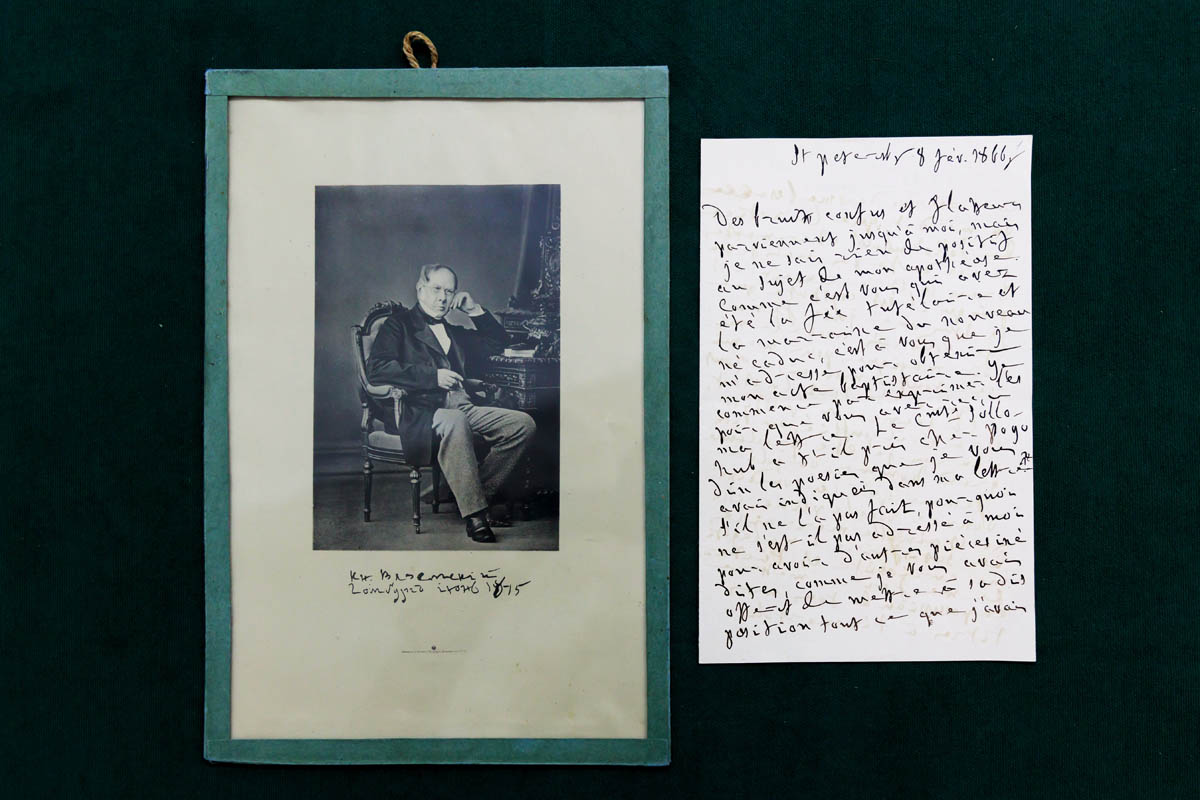 Кн. Вяземский
Гомбургъ июнь 1875
St petersbg 8 fév. 1866
Des bruits confus et flatteurs
parviennent jusqu'à moi, mais
je ne sais rien de positif
au sujet de mon apothéose.
Comme c'est vous qui avez
été la fée tutélaire et
la marraine du nouveau
né caduc, c'est à vous que je
m'adresse pour obtenir
mon acte baptistaire. Je
commence par exprimer
que vous avez reçu
ma lettre. Le Cte Sollo-
hub a t-il pris chez Pogo
din les poesies que je vous
avais indiqués dans ma lettre
S'il ne l'a pas fait, pourquoi
ne s'est-il pas adressé à moi
pour avoir d'autres pièces iné
dites, comme je vous avais
offert de mettre à sa dis
position tout ce que j'avais